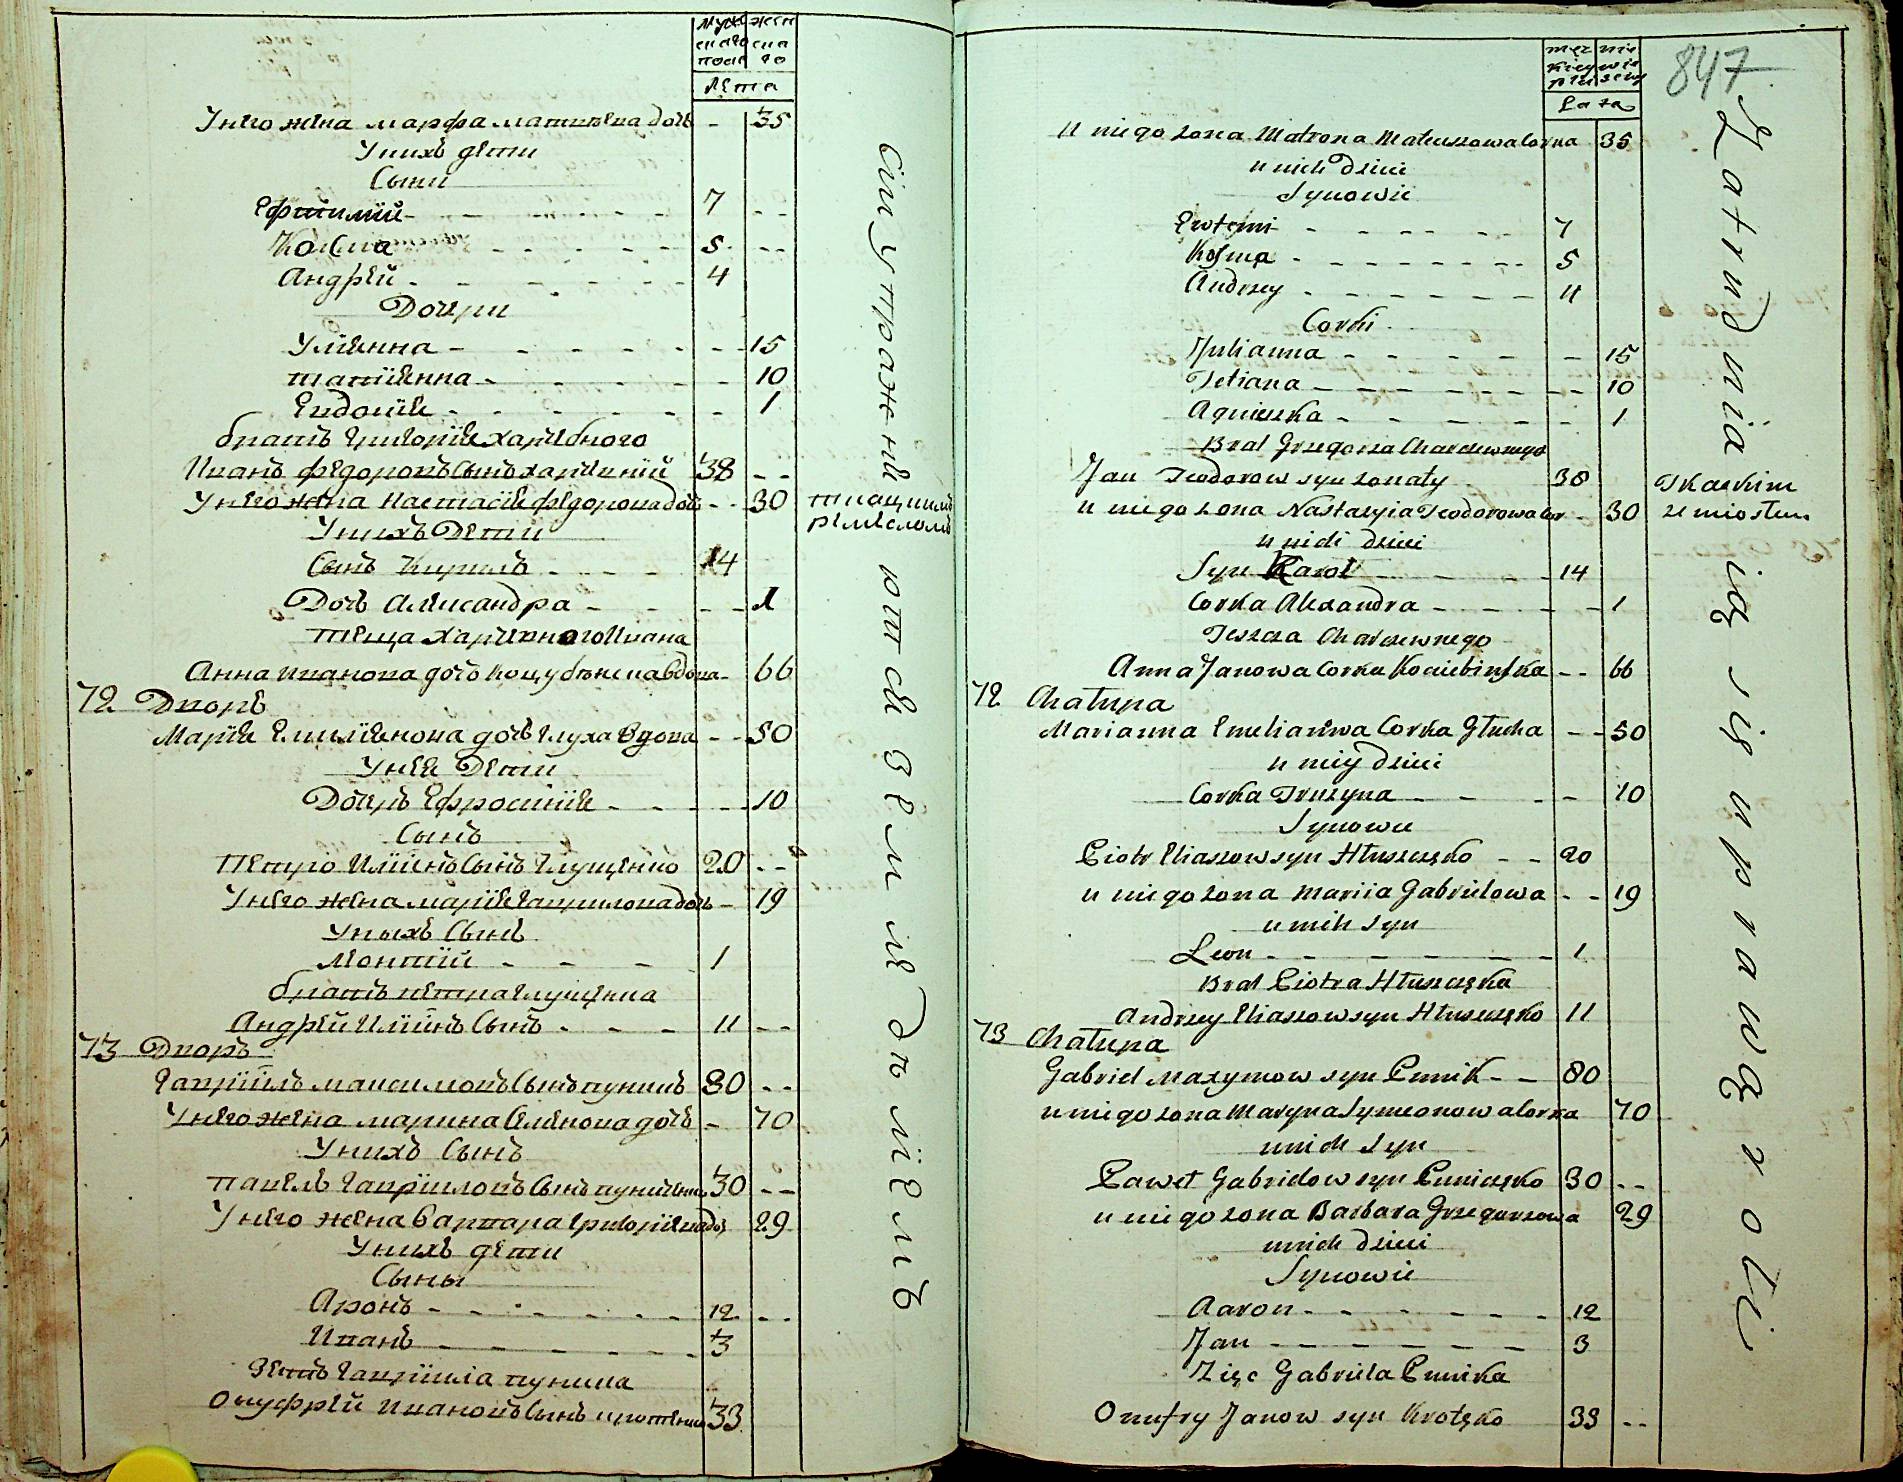 мужескаго пола
женскаго
лѣта
Унего жена марфа матвѣева дочь - 35
Унихъ дети
Сыни
Ефтимій 7 - -
Косма 5 - -
Андрѣй 4
Дочери
Уліянна - 15
татіянна - 10
Евдокія - 1
братъ григорія харченого
Иванъ федоровъ сынъ 38 - -
Унего жена настасія федорова дочь - - 30
Унихъ Дети
Сынъ кирилъ 14
Дочь александра - 1
теща Ивана
Анна иванова дочь вдова - 66
ткацкимъ
ремесломъ
72 Дворъ
Марія Емиліянова дочь глуха вдова - - 50
Унея Дети
Дочерь Ефросинія - 10
Сынъ
Петро Иліинъ Сынъ глущенко 20 - -
Унего жена марія гаврилова дочь - 19
Уныхъ Сынъ
Леонтій 1
братъ петра глущенка
Андрѣй Иліинъ Сынъ 11 - -
73 Дворъ
Гавріилъ максимовъ Сынъ пуникъ 80 - -
Унего жена марина Семенова дочь - 70
Унихъ Сынъ
павелъ гавріиловъ Сынъ 30 - -
Унего жена варвара григоріева дочь 29
Унихъ дети
Сыны
Аронъ 12 - -
Иванъ 3
Зеть гавріила пуника
Онуфрѣй Ивановъ Сынъ 33
сіи упражняются земледѣліемъ
847
męzkiey płci
niewieściey
Lata
u niego zona Matrona Mateuszowa Corka 35
u nich Dzieci
Synowie
Ewtemi 7
Kosma 5
Andrzey 4
Corki
Julianna - 15
Tetiana - 10
Agnieszka - 1
Brat Grzegorza
Jan Teodorow syn zonaty 38
u niego zona Nastazyia Teodorowa Cor - 30
Tkackim
rzemiosłem
u nich dzieci
Syn Karol 14
Corka Alexandra - 1
Teszcza
Anna Janowa Corka Kociubińska - - 66
72 Chałupa
Marianna Emelianowa Corka Głucha - - 50
u niey dzieci
Corka Fruzyna - 10
Synowie
Piotr Eliaszow syn Hłuszczęko - - 20
u niego zona Mariia Gabrielowa - - 19
u nich syn
Leon 1
Brat Piotra Hłuszczęka
Andrzey Eliaszow syn Hłuszczęko 11
73 Chałupa
Gabriel Maxymow syn Punik - - 80
u niego zona Maryna Symeonowa Corka 70
u nich syn
Paweł Gabrielow syn Puniczęko 30 - -
u niego zona Barbara Grzegorzowa 29
u nich dzieci
Synowie
Aaron 12
Jan 3
Zięć Gabriela Punika
Onufry Janow syn Krotęko 33 - -
Zatrudnia ią się uprawą roli